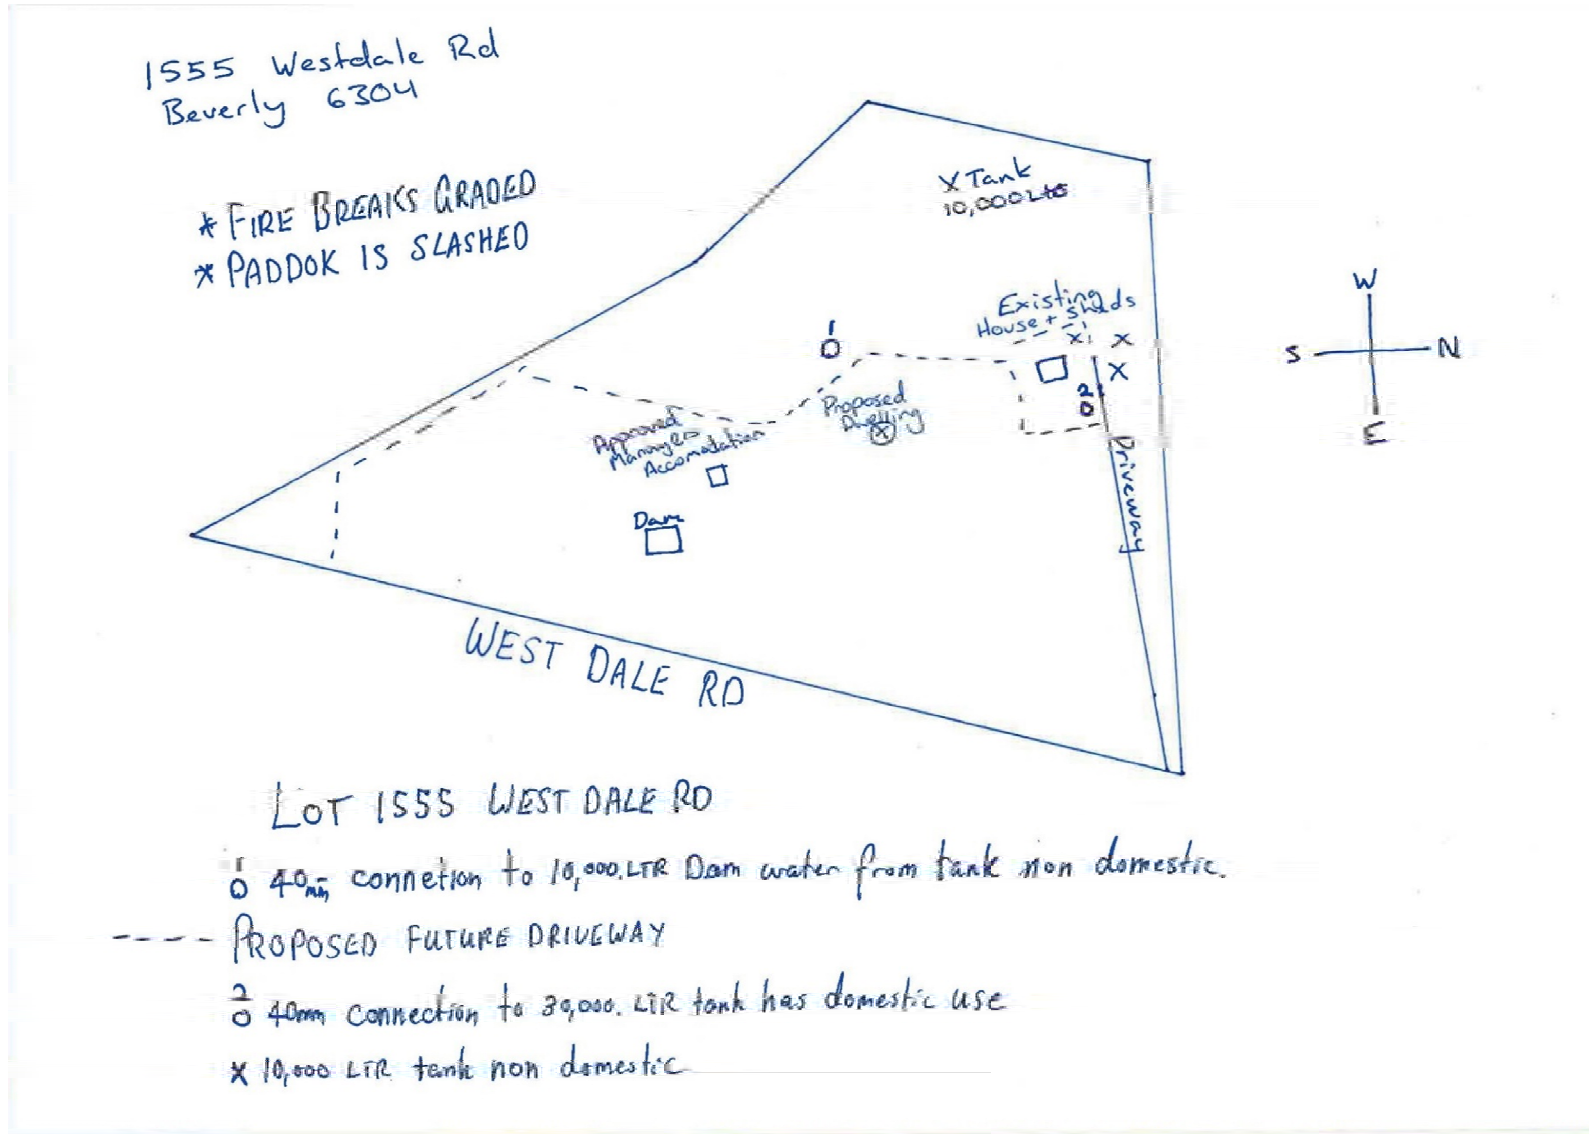 1555 Westdale Rd
Beverly 6304
* FIRE BREAKS GRADED
* PADDOK IS SLASHED
X Tank
10,000 Ltrs
Existing
House + Sheds
X X
X
1
O
2
O
Proposed
Dwelling
X
Approved
Managers
Accomodation
Dam
Driveway
W
S N
E
WEST DALE RD
LOT 1555 WEST DALE RD
1
O 40mm connetion to 10,000.LTR Dam water from tank non domestic.
---- PROPOSED FUTURE DRIVEWAY
2
O 40mm connection to 30,000. LTR tank has domestic use
X 10,000 LTR tank non domestic